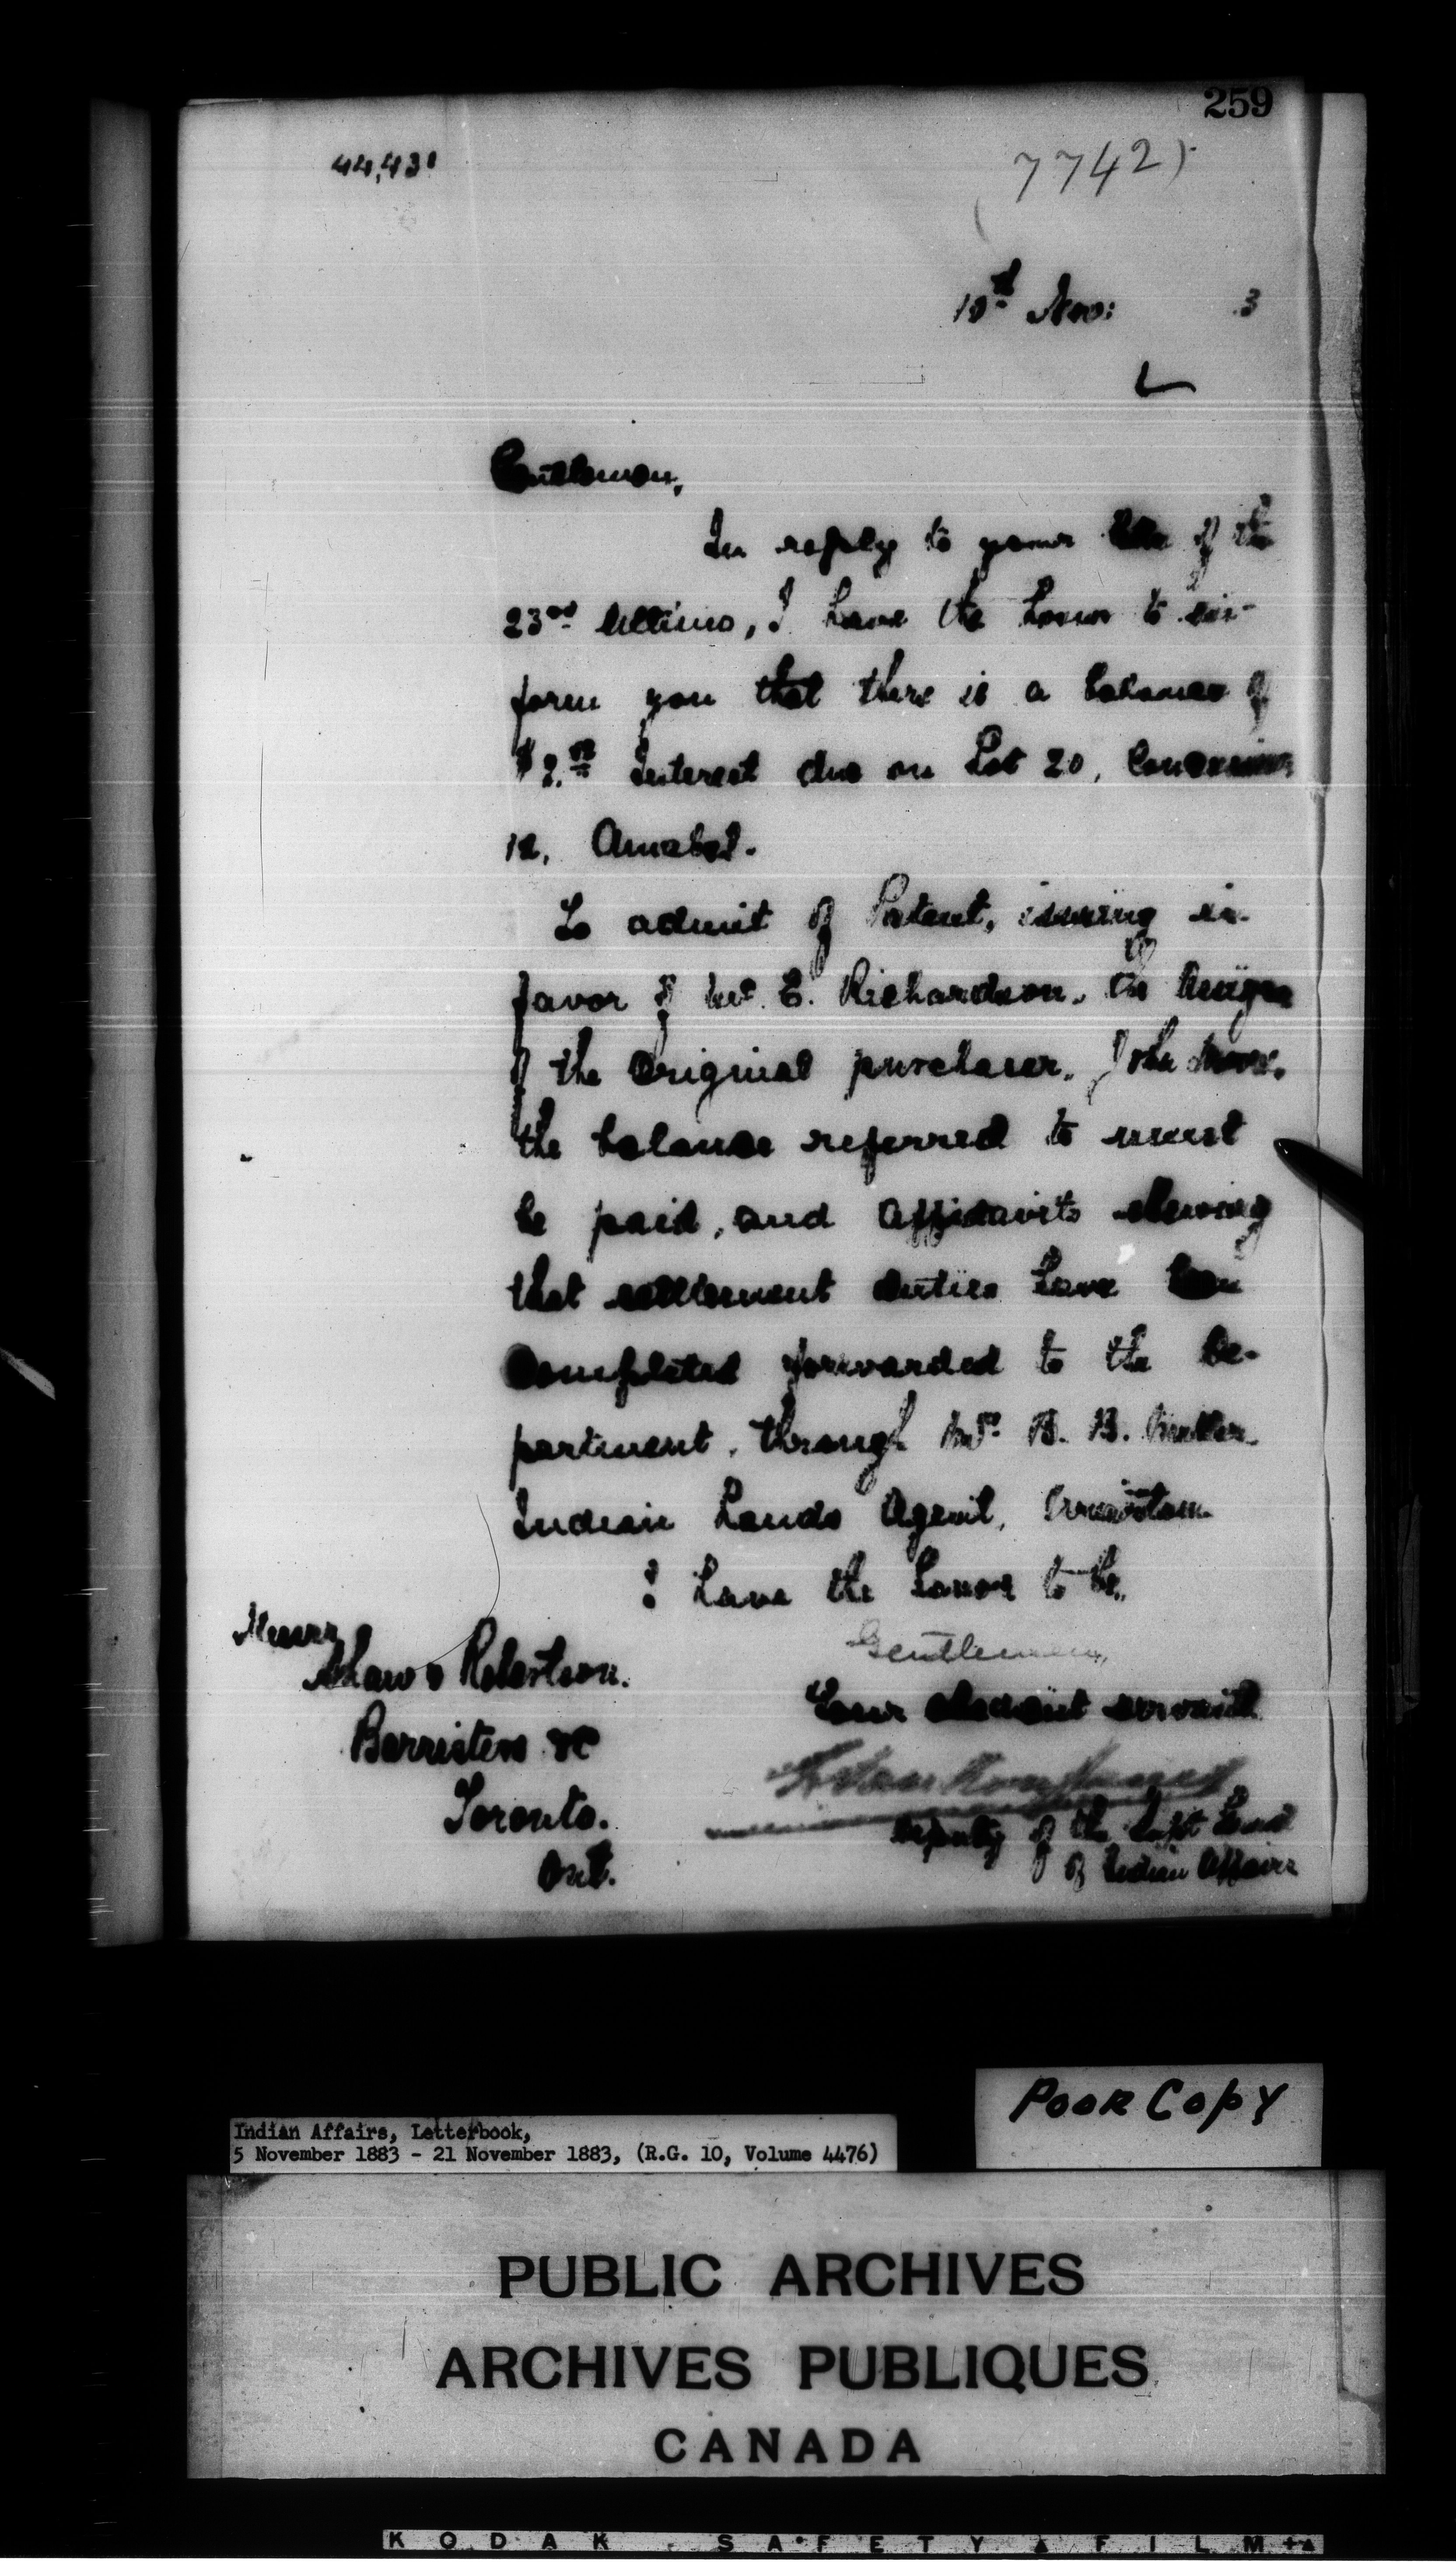 259
44,430
7742
10th Nov: 3
Gentlemen,
In reply to your letter of the
23rd Ultimo, I have the honor to in-
form you that there is a balance of
Interest due on Lot 20, Concession
12, Amabel.
To admit of Patent, issuing in
favor of Mr. E. Richardson, the Assignee
of the Original purchaser, John
the balance referred to must
be paid, and Affidavits shewing
that settlement duties have been
Completed forwarded to the De-
partment, through Mr. B. B. Miller,
Indian Lands Agent, Wiarton.
I have the honor to be,
Gentlemen,
Your obedient servant
L. Vankoughnet
Deputy of the Supt Genl
of Indian Affairs
Messrs
Shaw & Robertson.
Barristers &c
Toronto.
Ont.
POOR COPY
Indian Affairs, Letterbook,
5 November 1883 - 21 November 1883, (R.G. 10, Volume 4476)
PUBLIC ARCHIVES
ARCHIVES PUBLIQUES
CANADA
KODAK SAFETY FILM